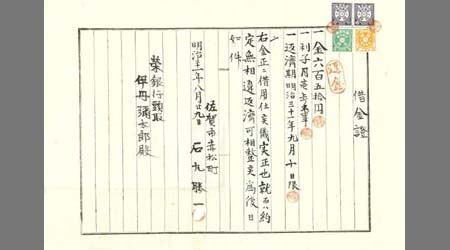 借金證
一金六百五拾円
一利子月壱歩
一返済期明治三十一年九月十日限
右金正ニ借用仕候儀実正也就而ハ約
定無相違返済可相整候為後日
如件
佐賀市赤松町
石丸勝一
明治卅一年八月廿九日
榮銀行頭取
伊丹彌太郎殿